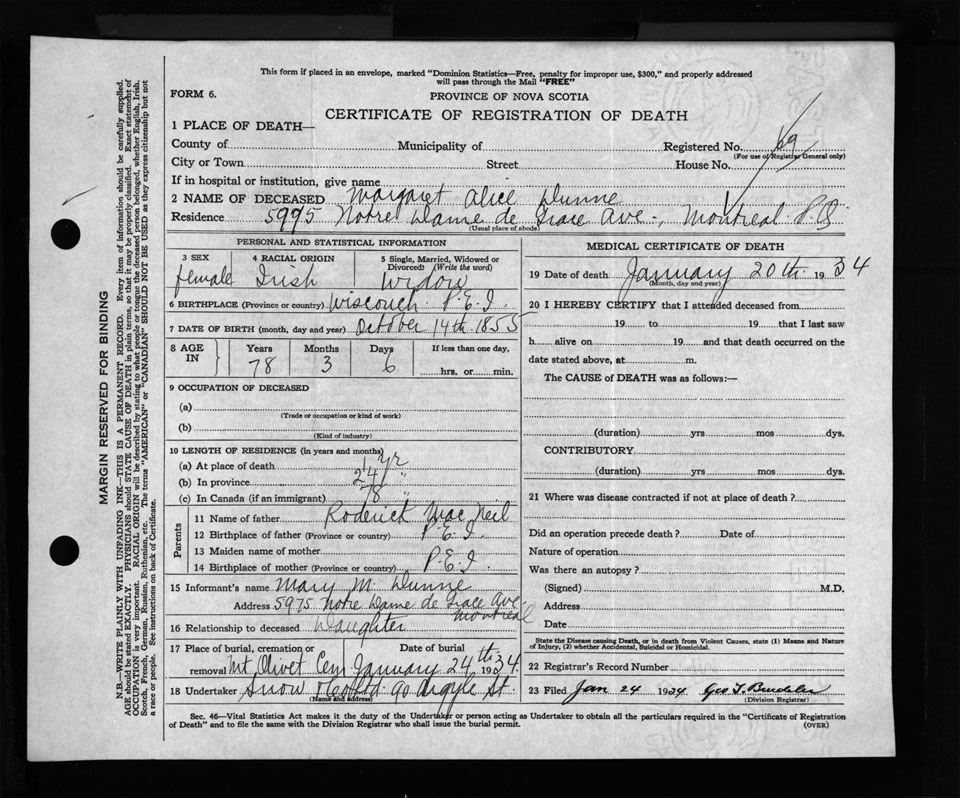 This form if placed in an envelope, marked "Dominion Statistics—Free, penalty for improper use, $300," and properly addressed
will pass through the Mail "FREE"
FORM 6.
PROVINCE OF NOVA SCOTIA
CERTIFICATE OF REGISTRATION OF DEATH
1 PLACE OF DEATH—
County of Municipality of Registered No. 69
(For use of Registrar General only)
City or Town Street House No.
If in hospital or institution, give name
2 NAME OF DECEASED Margaret Alice Dunne
Residence 5995 Notre Dame de Grace Ave., Montreal P.Q.
(Usual place of abode)
PERSONAL AND STATISTICAL INFORMATION
3 SEX 4 RACIAL ORIGIN 5 Single, Married, Widowed or
Divorced? (Write the word)
female Irish Widow
6 BIRTHPLACE (Province or country) Wiscouch P.E.I.
7 DATE OF BIRTH (month, day and year) October 14th 1855
8 AGE IN Years Months Days If less than one day,
78 3 6 hrs. or min.
9 OCCUPATION OF DECEASED
(a)
(Trade or occupation or kind of work)
(b)
(Kind of industry)
10 LENGTH OF RESIDENCE (in years and months)
(a) At place of death
(b) In province 24 yr
(c) In Canada (if an immigrant) 78 "
Parents
11 Name of father Roderick MacNeil
12 Birthplace of father (Province or country) P.E.I.
13 Maiden name of mother
14 Birthplace of mother (Province or country) P.E.I.
15 Informant's name Mary M. Dunne
Address 5975 Notre Dame de Grace Ave
Montreal
16 Relationship to deceased Daughter
17 Place of burial, cremation or Date of burial
removal Mt. Olivet Cem January 24th 1934
18 Undertaker Snow 90 Argyle St.
(Name and address)
MEDICAL CERTIFICATE OF DEATH
19 Date of death January 20th 1934
(Month, day and year)
20 I HEREBY CERTIFY that I attended deceased from
19 to 19 that I last saw
h alive on 19 and that death occurred on the
date stated above, at m.
The CAUSE of DEATH was as follows:—
(duration) yrs mos dys.
CONTRIBUTORY
(duration) yrs mos dys.
21 Where was disease contracted if not at place of death?
Did an operation precede death? Date of
Nature of operation
Was there an autopsy?
(Signed) M.D.
Address
Date
State the Disease causing Death, or in death from Violent Causes, state (1) Means and Nature
of Injury, (2) whether Accidental, Suicidal or Homicidal.
22 Registrar's Record Number
23 Filed Jan 24 1934 Geo T.
(Division Registrar)
Sec. 46—Vital Statistics Act makes it the duty of the Undertaker or person acting as Undertaker to obtain all the particulars required in the "Certificate of Registration
of Death" and to file the same with the Division Registrar who shall issue the burial permit. (OVER)
MARGIN RESERVED FOR BINDING
N.B.—WRITE PLAINLY WITH UNFADING INK—THIS IS A PERMANENT RECORD. Every item of information should be carefully supplied.
AGE should be stated EXACTLY. PHYSICIANS should STATE CAUSE OF DEATH in plain terms, so that it may be properly classified. Exact statement of
OCCUPATION is very important. RACIAL ORIGIN will be described by stating to what people or tongue the deceased person belonged, whether English, Irish,
Scotch, French, German, Russian, Ruthenian, etc. The terms "AMERICAN" or "CANADIAN" SHOULD NOT BE USED as they express citizenship but not
a race or people. See instructions on back of Certificate.